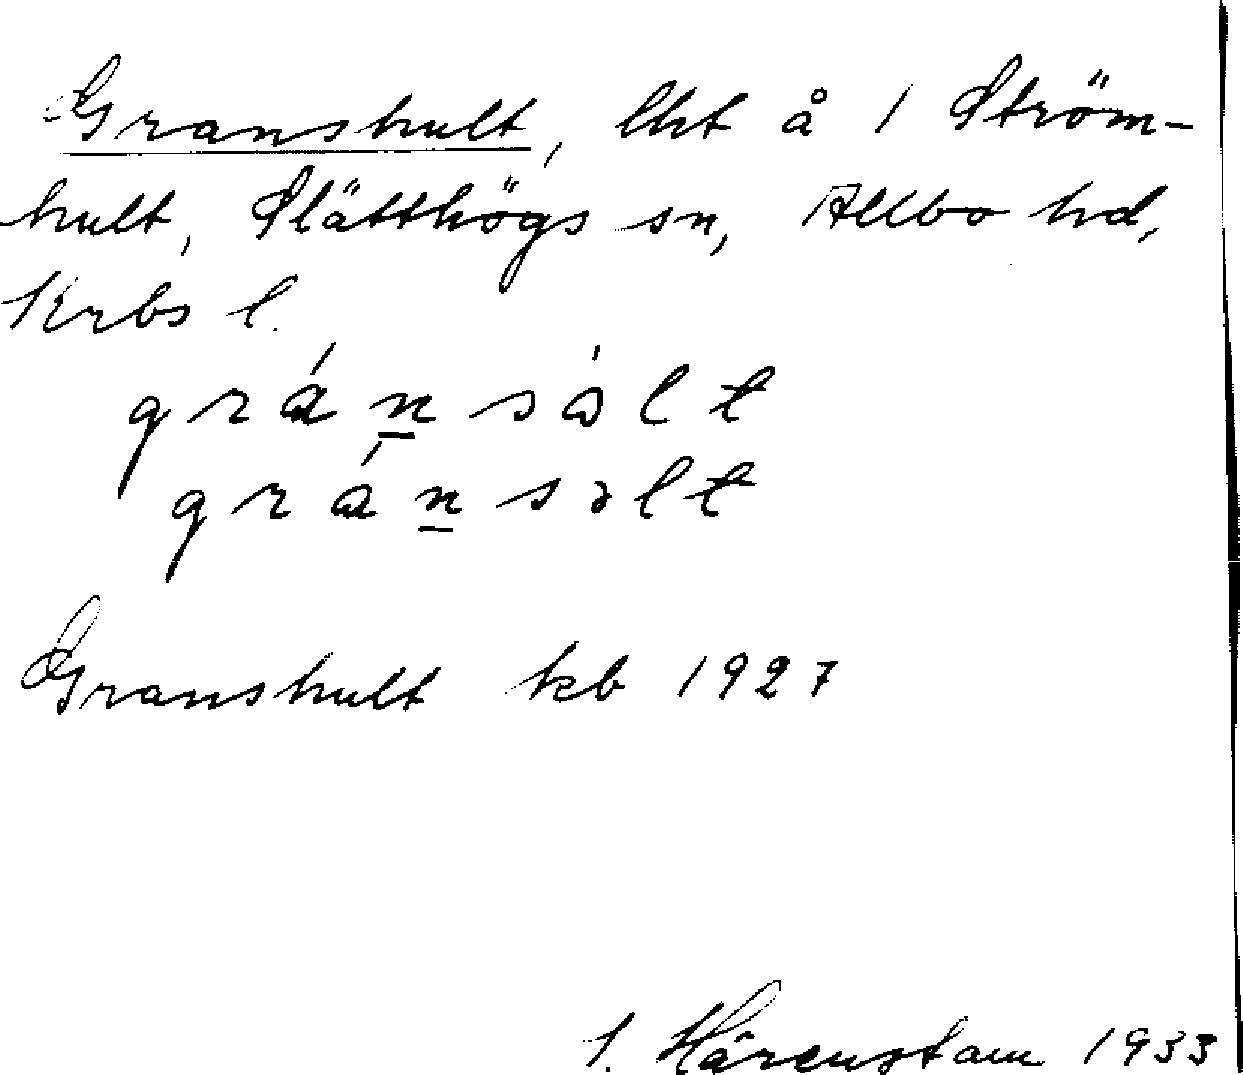 Granshult, lht å 1 Ström-
hult, Slätthögs sn, Allbo hd,
Krbs l.
gránsàlt
gránsəlt
Granshult kb 1927
I. Hårenstam 1933